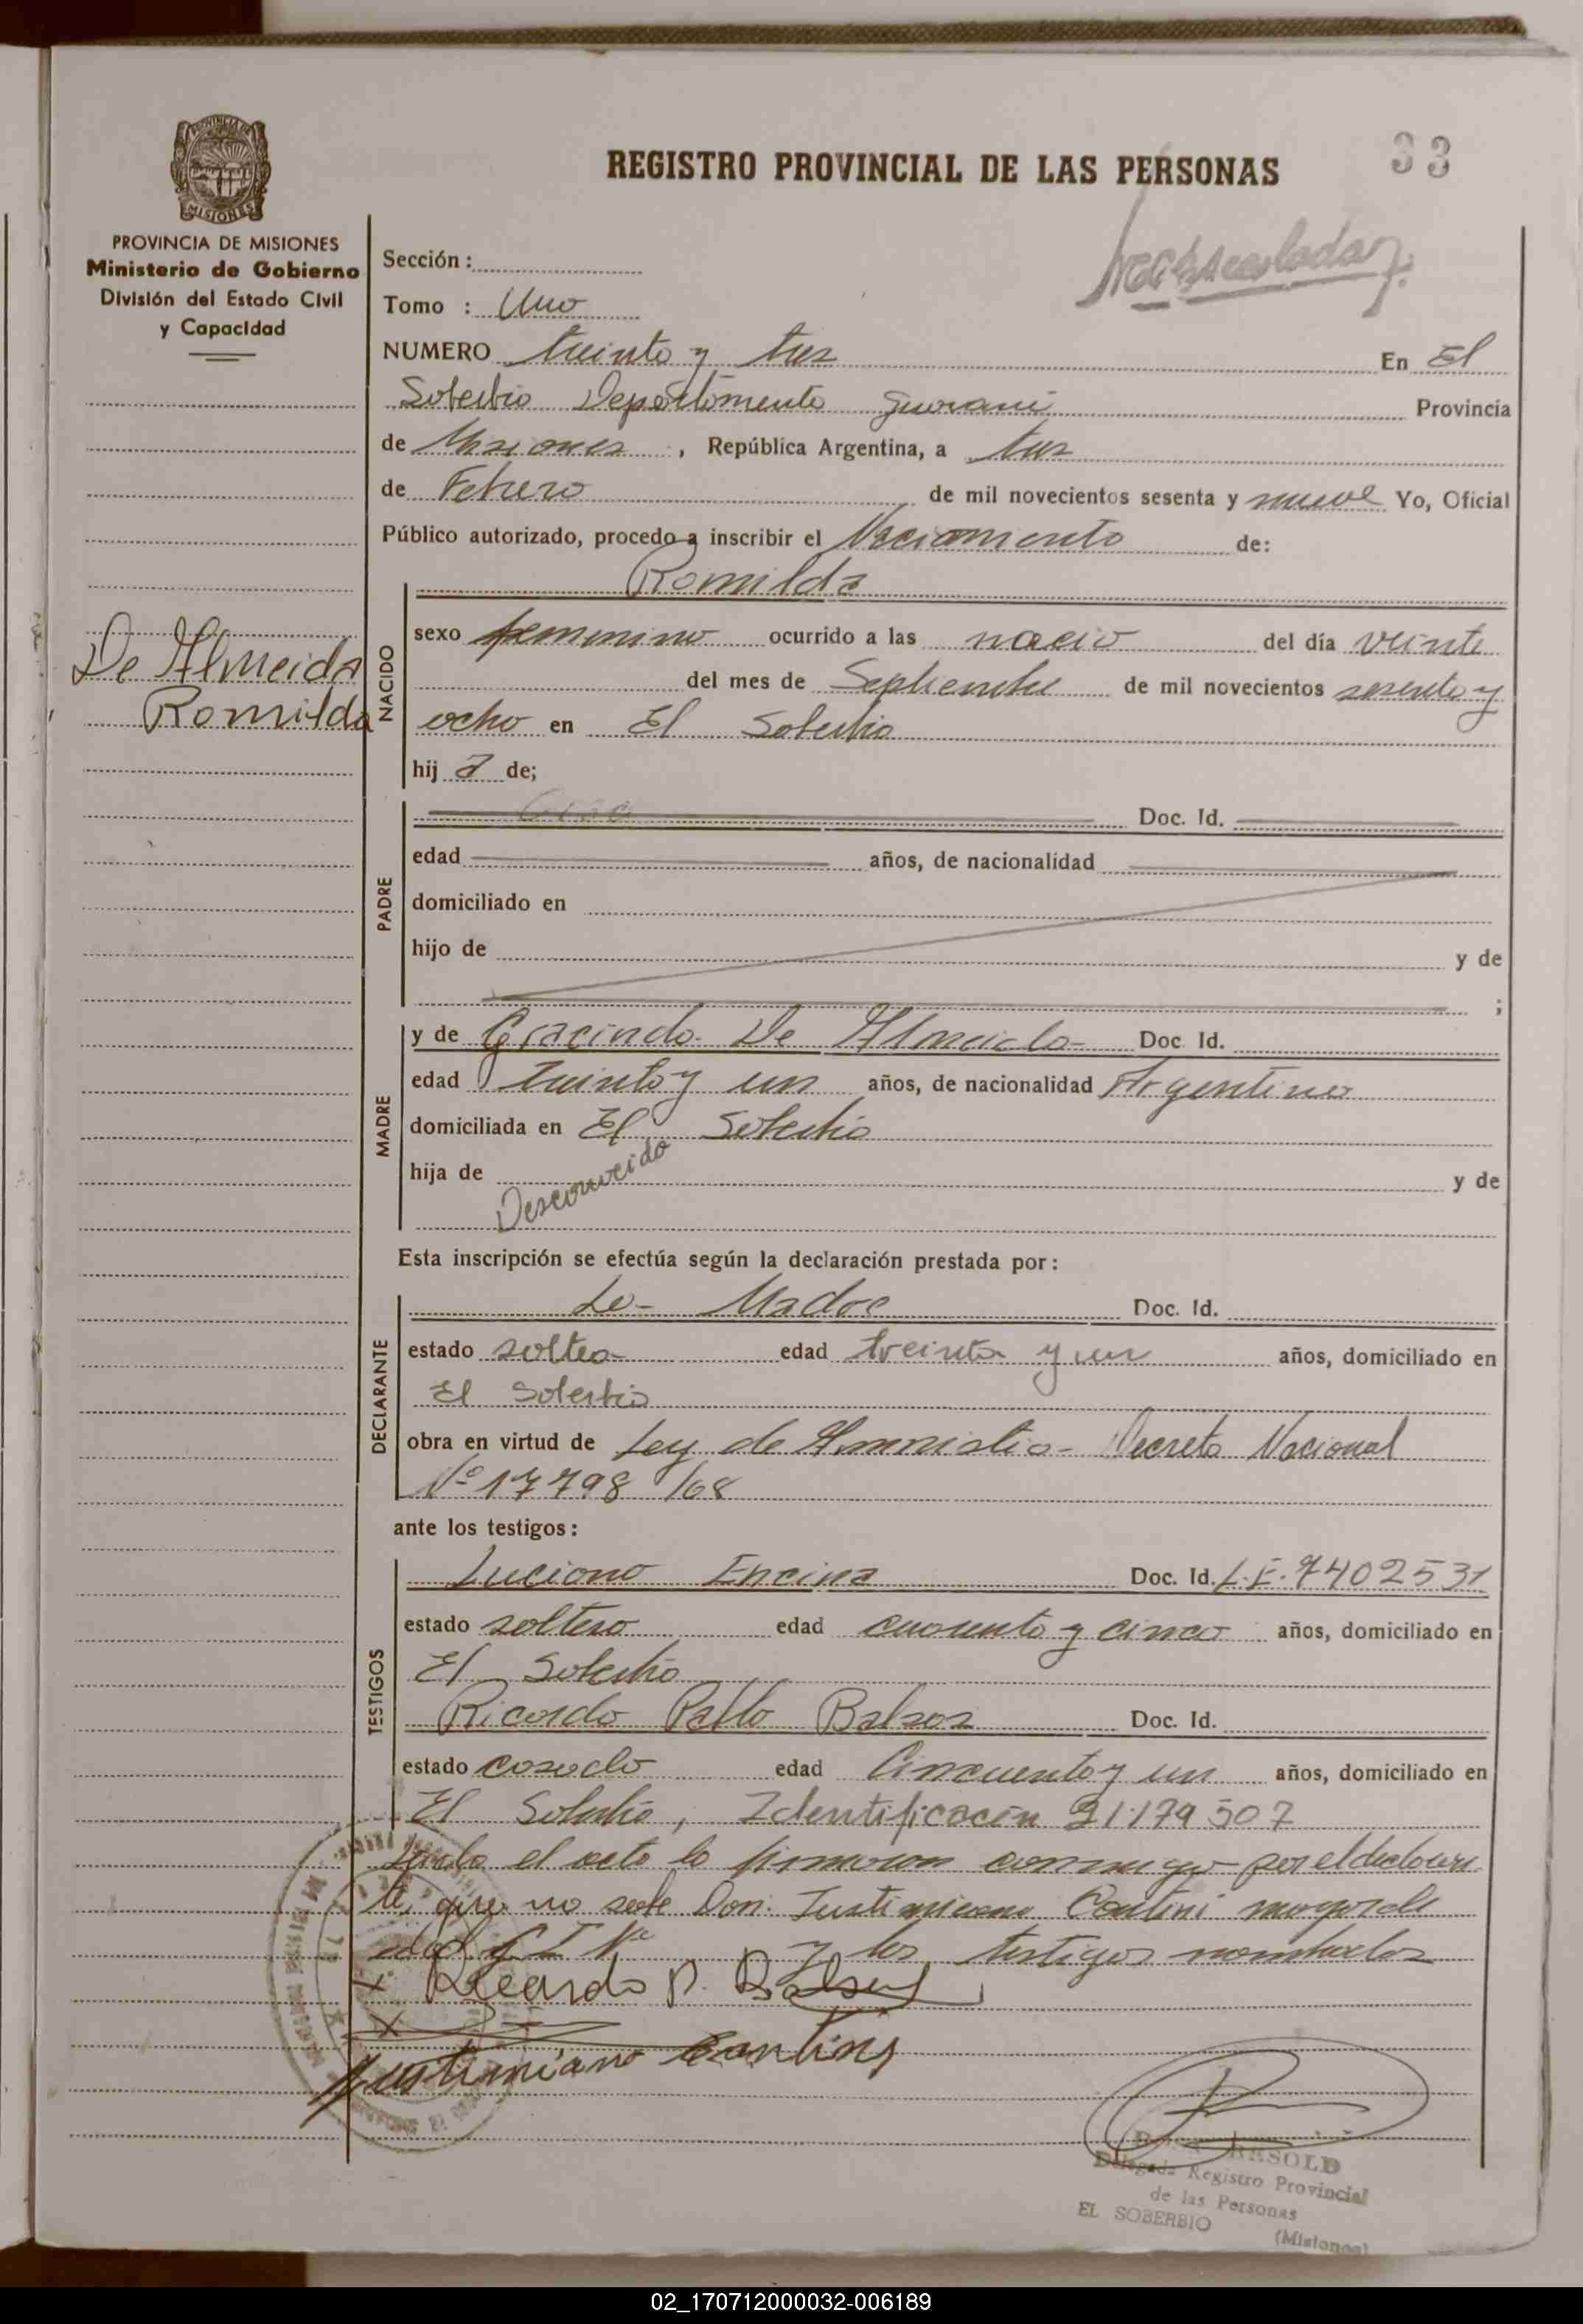 33
REGISTRO PROVINCIAL DE LAS PERSONAS
PROVINCIA DE
MISIONES
PROVINCIA DE MISIONES
Ministerio de Gobierno
División del Estado Civil
y Capacidad
Sección :
Tomo : Uno
NUMERO treinta y tres En El
Soberbio Departamento Guarani Provincia
de Misiones , República Argentina, a tres
de Febrero de mil novecientos sesenta y nueve Yo, Oficial
Público autorizado, procedo a inscribir el Naciamento de:
Romilda
De Almeida
Romilda
NACIDO
sexo femenino ocurrido a las nacio del día veinte
del mes de Septiembre de mil novecientos sesenta y
ocho en El Soberbio
hij a de;
PADRE
Doc. Id.
edad años, de nacionalidad
domiciliado en
hijo de y de
;
MADRE
y de Gracinda De Almeida Doc. Id.
edad treinta y un años, de nacionalidad Argentina
domiciliada en El Soberbio
hija de Desconocido y de
Esta inscripción se efectúa según la declaración prestada por:
DECLARANTE
La Madre Doc. Id.
estado soltea edad treinta y un años, domiciliado en
El Soberbio
obra en virtud de Ley de Amnistia - Decreto Nacional
Nº 17798/68
ante los testigos:
TESTIGOS
Luciano Encina Doc. Id. L.E. 7402531
estado soltero edad cuarenta y cinco años, domiciliado en
El Soberbio
Ricardo Pablo Doc. Id.
estado casado edad Cincuenta y un años, domiciliado en
El Soberbio, Identificación
el acta la firmaron conmigo por el declaran
te, que no sabe Don: Justimiano Contini mayor de
edad C I Nº y los testigos nombrados
x Ricardo P.
x
Justimiano Contini
RESOLD
Delegada Registro Provincial
de las Personas
EL SOBERBIO (Misiones)
02_170712000032-006189